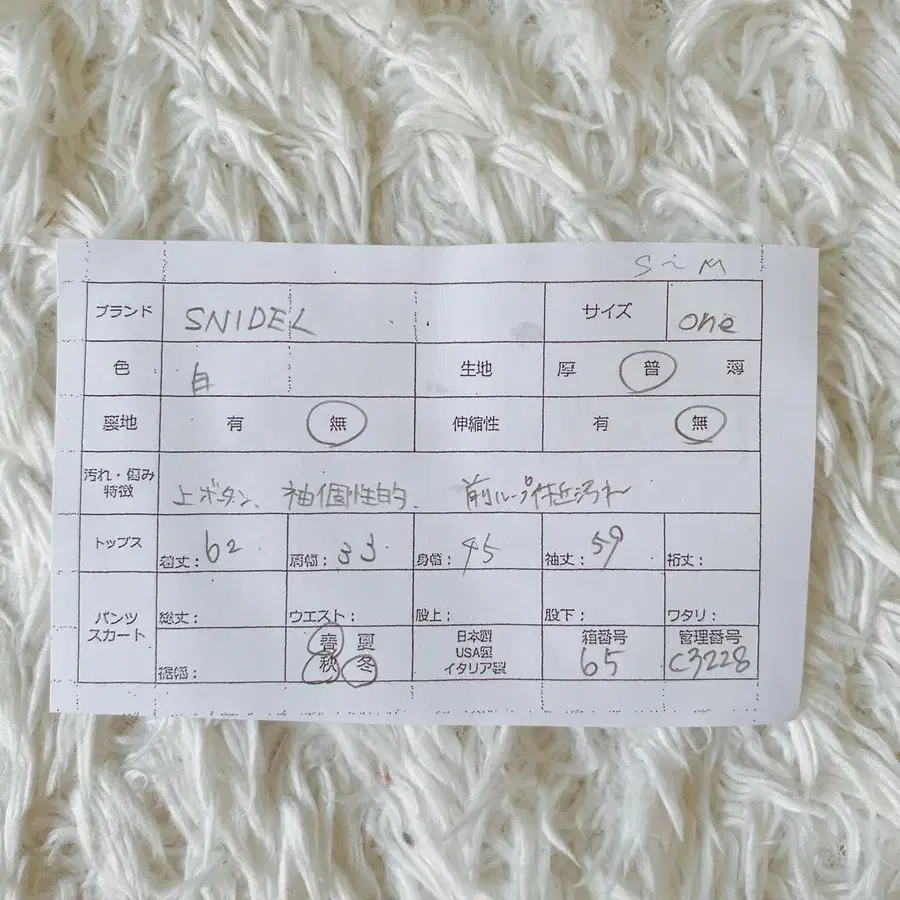 S〜M
ブランド SNIDEL サイズ one
色 白 生地 厚 普 薄
裏地 有 無 伸縮性 有 無
汚れ・傷み
特徴 上ボタン、袖個性的、前ループ付近汚れ
トップス 着丈：62 肩幅：33 身幅：45 袖丈：59 裄丈：
パンツ
スカート 総丈： ウエスト： 股上： 股下： ワタリ：
裾幅： 春 夏 秋 冬 日本製 USA製 イタリア製 箱番号 65 管理番号 C3228